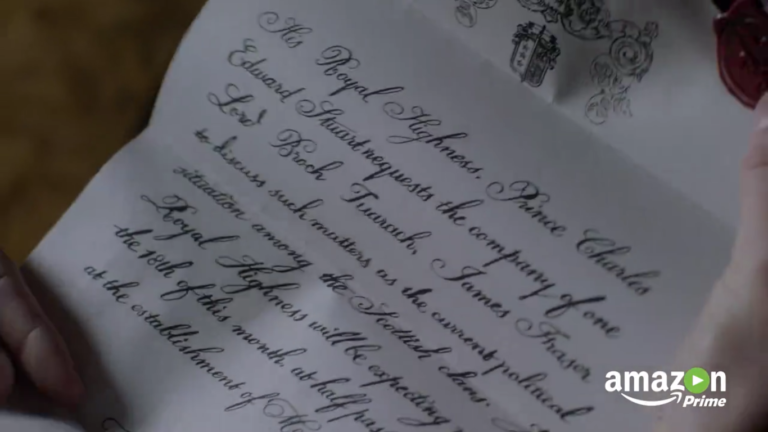 His Royal Highness, Prince Charles
Edward Stuart requests the company of one
Lord Broch Tuarach, James Fraser
to discuss such matters as the current political
situation among the Scottish clans.
Royal Highness will be expecting
the 18th of this month, at half pas
at the establishment of
amazon
Prime